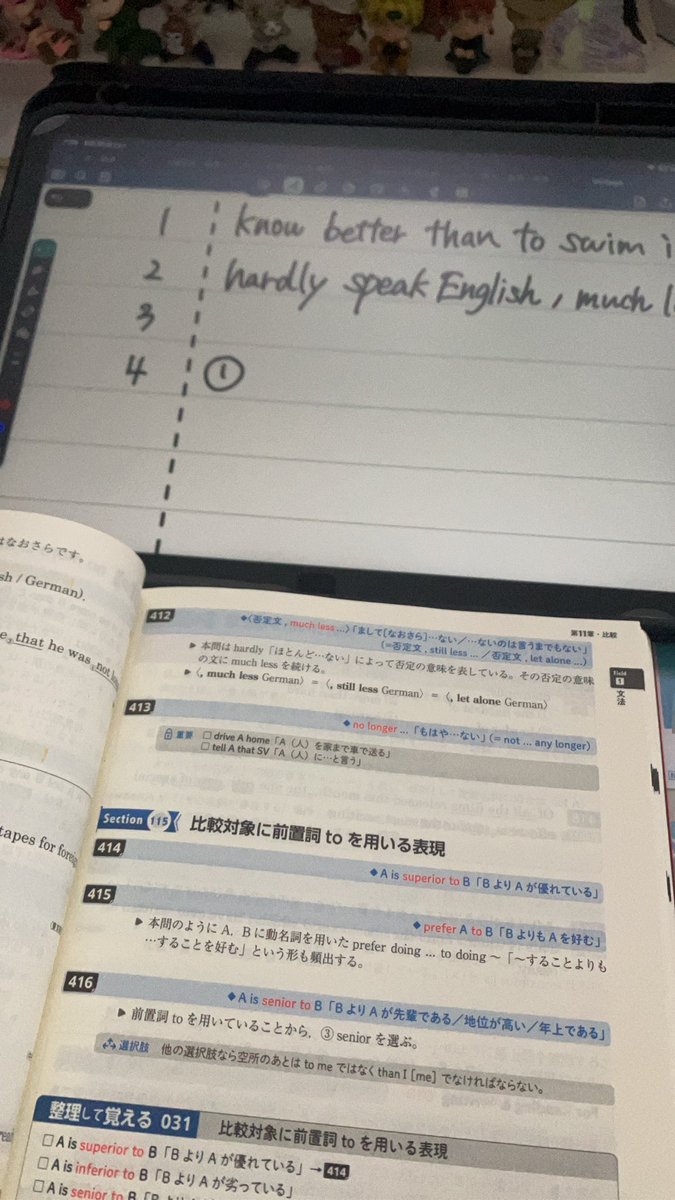 1 know better than to swim i
2 hardly speak English, much l
3
4 ①
はなおさらです。
sh / German).
that he was not
tapes for foreig
第11章・比較
Field 1 文法
412 ◆〈否定文, much less ...〉「まして[なおさら]…ない／…ないのは言うまでもない」
(=否定文, still less ... ／否定文, let alone ...)
▶ 本問は hardly「ほとんど…ない」によって否定の意味を表している。その否定の意味
の文に much less を続ける。
▶〈, much less German〉=〈, still less German〉=〈, let alone German〉
413 ◆ no longer ...「もはや…ない」(= not ... any longer)
重要 □ drive A home「A（人）を家まで車で送る」
□ tell A that SV「A（人）に…と言う」
Section 115 比較対象に前置詞 to を用いる表現
414 ◆ A is superior to B「B より A が優れている」
415 ◆ prefer A to B「B よりも A を好む」
▶ 本問のように A, B に動名詞を用いた prefer doing ... to doing ~「~することよりも
…することを好む」という形も頻出する。
416 ◆ A is senior to B「B より A が先輩である／地位が高い／年上である」
▶ 前置詞 to を用いていることから, ③ senior を選ぶ。
選択肢 他の選択肢なら空所のあとは to me ではなく than I [me] でなければならない。
整理して覚える 031 比較対象に前置詞 to を用いる表現
□ A is superior to B「B より A が優れている」→414
□ A is inferior to B「B より A が劣っている」
□ A is senior to B「B